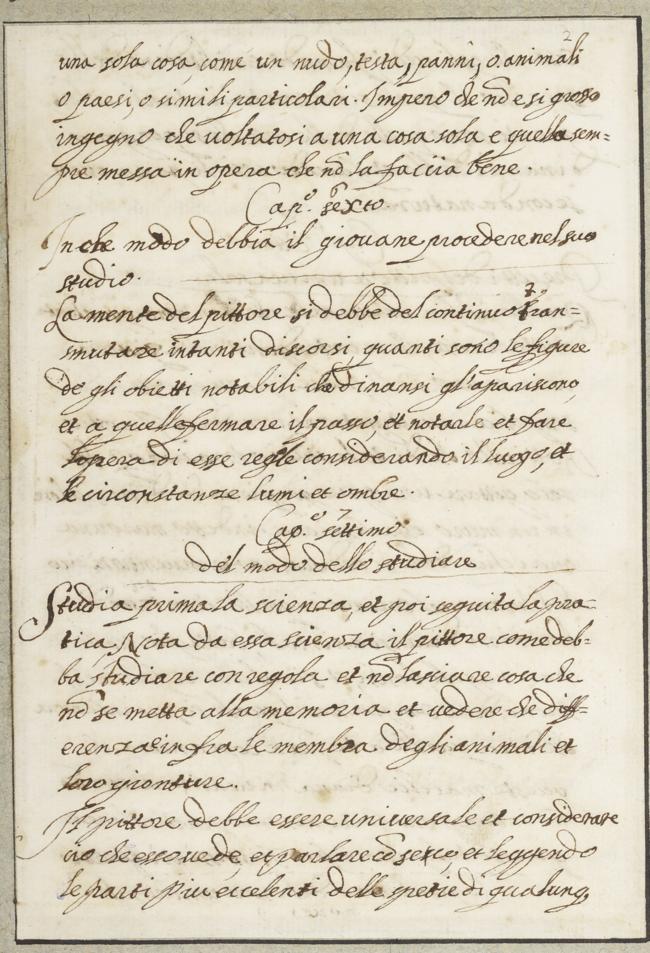 2
una sola cosa come un nudo, testa, panni, o animali
o paesi, o simili particolari. Impero che nō e si grosso
ingegno che voltatosi a una cosa sola e quella sem=
pre messa in opera che nō la faccia bene.
Cap.º sexto 6
In che modo debbia il giovane procedere nel suo
studio.
La mente del pittore si debbe del continuo tran=
smutare in tanti discorsi, quanti sono le figure
de gli obietti notabili che dinansi gl'apariscono,
et a quelle fermare il passo, et notarle et fare
l'opera di esse regle considerando il luogo, et
le circonstanze lumi et ombre.
Cap.º settimo 7
del modo dello studiare
Studia prima la scienza, et poi seguita la pra-
tica, Nota da essa scienza il pittore come deb-
ba studiare con regola et nō lasciare cosa che
nō se metta alla memoria et vedere che diff-
erenza e infra le membra degli animali et
loro gionture.
Il pittore debbe essere universale et considerare
cio che esso vede, et parlare cō seco, et leggendo
le parti piu eccelenti delle spetie di qualunq,